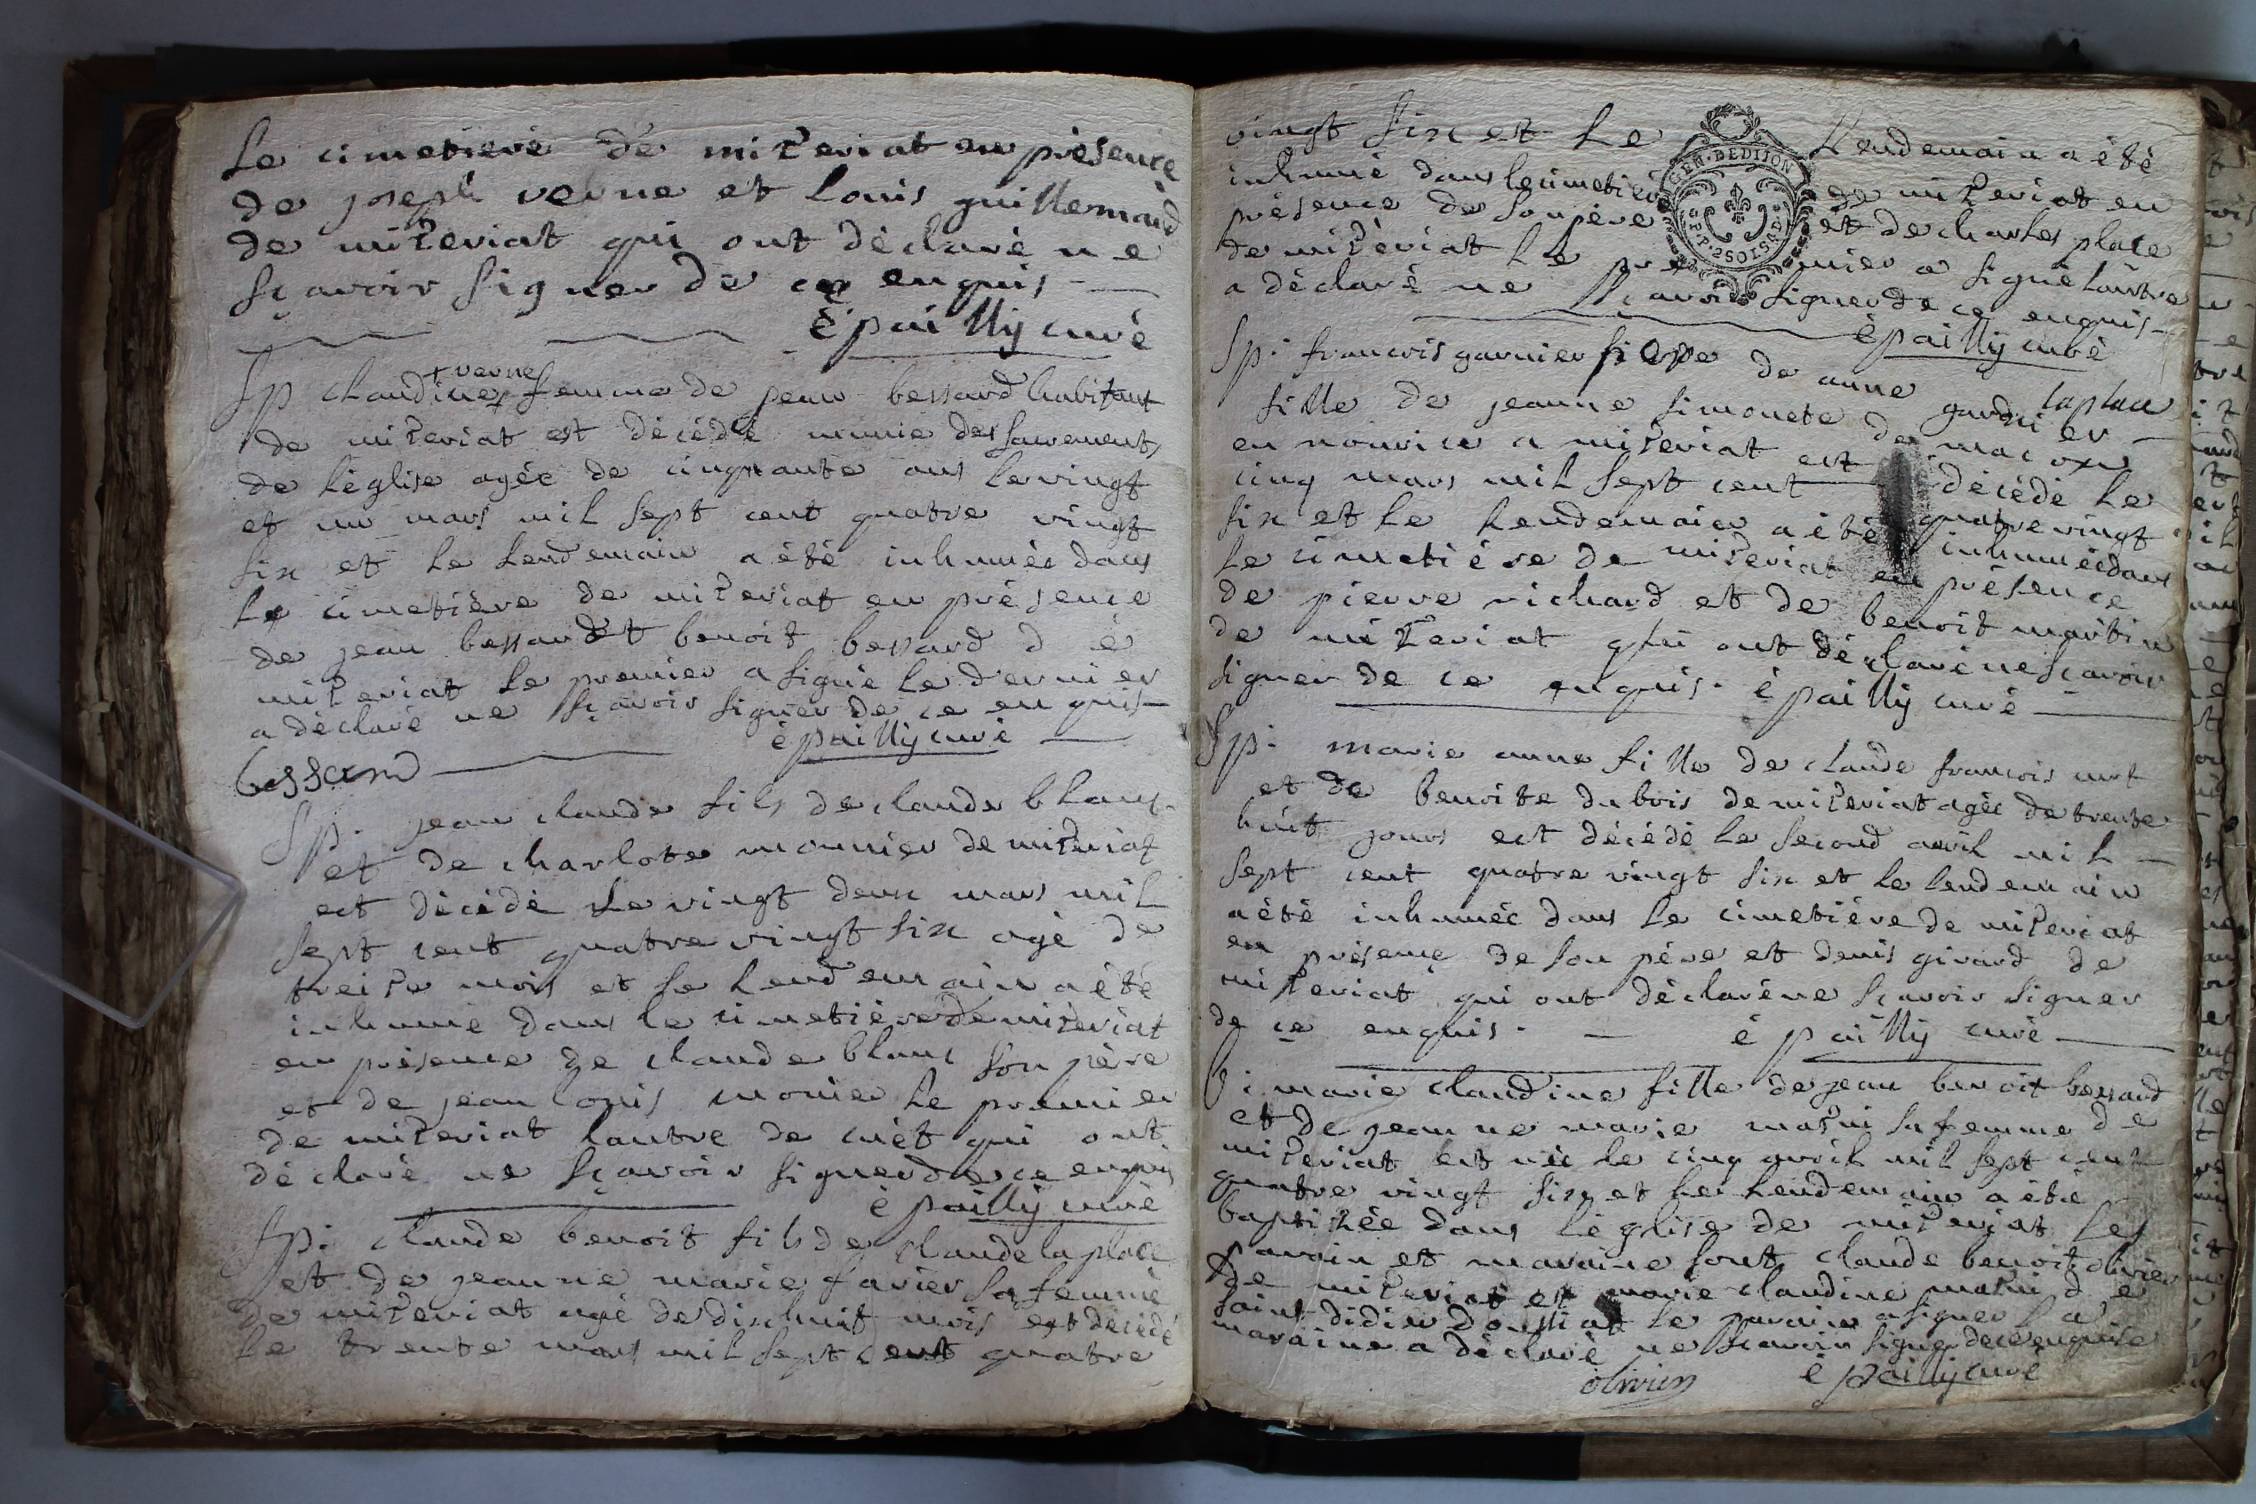 Le cimetiere de miseriat en présence
de joseph verne et Louis guillemaud
de miseriat qui ont déclaré ne
sçavoir signer de ce enquis
épailly curé
+ verne
Sp claudine + femme de jean bessard habitant
de miseriat est décédé munie des sacrements
de Léglise agée de cinquante ans Le vingt
et un mars mil sept cent quatre vingt
six et Le Lendemain a été inhumée dans
Le cimetière de miseriat en présence
de jean bessard et benoit bessard d é
miseriat Le premier a signé Le dernier
a déclaré ne sçavoir signer de ce enquis
épailly curé
bessard
Sp. jean claude fils de claude blanc
et de charlote monnier de miseriat
est décédé Le vingt deux mars mil
sept cent quatre vingt six agé de
treise mois et Le Lendemain a été
inhumé dans Le cimetière de miseriat
en présence de claude blanc son père
et de jean Louis monier Le premier
de miseriat Lautre de cuét qui ont
déclaré ne sçavoir signer de ce enquis
épailly curé
Sp. claude benoit fils de claude la place
et de jeanne marie favier sa femme
de miseriat agé de dix huit mois est décédé
Le trente mars mil sept cent quatre
vingt six et Le Lendemain a été
inhumé dans Le cimetiere de miseriat en
présence de son père et de charles place
de misériat Le premier a signé Lautre
a déclaré ne sçavoir signer de ce enquis
GEN. DE DIJON
2 SOLS
épailly curé
laplace
Sp. francois garnier de anne garnier
fille de jeanne simonete de macon
en nourice a miseriat est décédé Le
cinq mars mil sept cent quatre vingt
six et Le Lendemain a été inhumée dans
Le cimetière de miseriat en présence
de pierre richard et de benoit martin
de miseriat qui ont déclaré ne sçavoir
signer de ce enquis. épailly curé
Sp. marie anne fille de claude francois
et de benoite dubois de miseriat agée de trente
huit jours est décédé Le second avril mil
sept cent quatre vingt six et Le Lendemain
a été inhumée dans Le cimetière de miseriat
en présence de son père et denis girard de
miseriat qui ont déclaré ne sçavoir signer
de ce enquis. épailly curé
marie claudine fille de jean benoit bessard
et de jeanne marie sa femme de
miseriat est née le cinq avril mil sept cent
quatre vingt six et Le Lendemain a été
baptisée dans Léglise de miseriat Les
parain et maraine sont claude benoit olivier
de miseriat et marie claudine d e
saint didier Le parain a signer La
maraine a déclaré ne sçavoir signer de ce enquise
olivier épailly curé